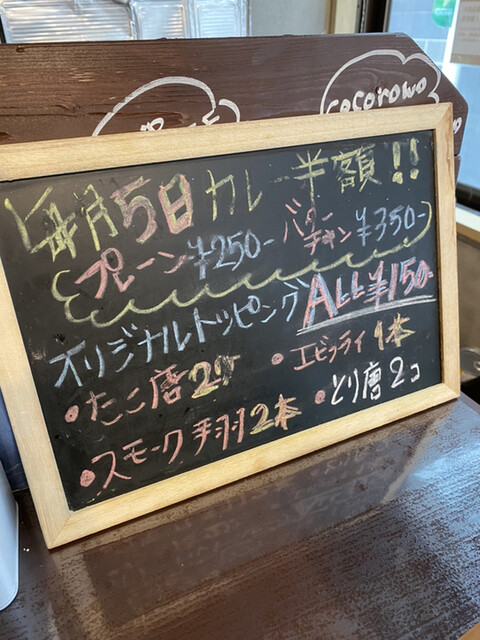 cocorowo
毎月5日カレー半額!!
プレーン¥250- バターチキン¥350-
オリジナルトッピング ALL¥150-
・たこ唐2ケ ・エビフライ1本
・スモーク手羽2本 ・とり唐2コ